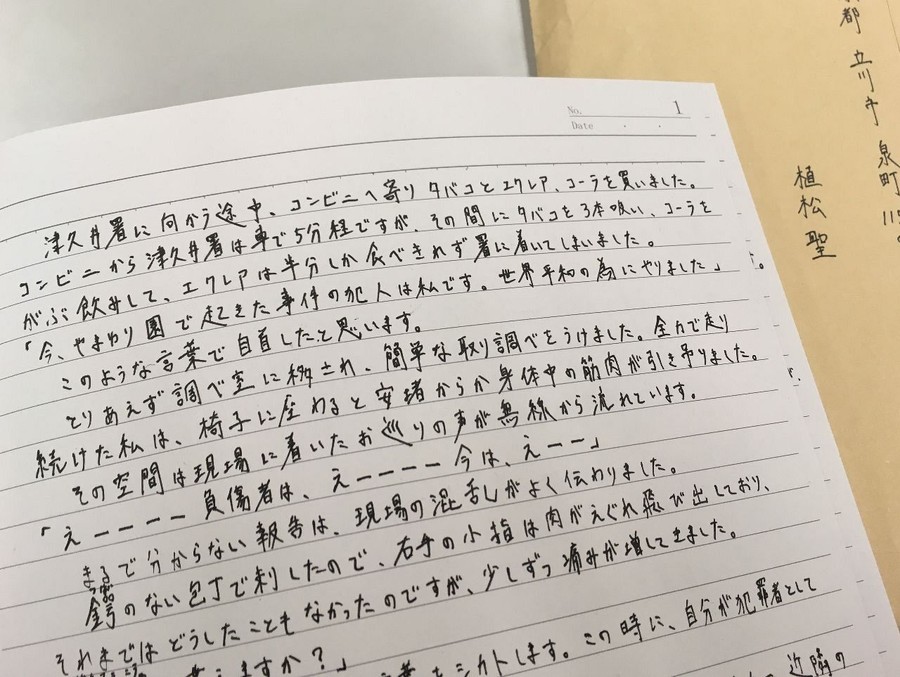 No. 1
Date ・ ・
津久井署に向かう途中、コンビニへ寄りタバコとエクレア、コーラを買いました。
コンビニから津久井署は車で5分程ですが、その間にタバコを3本吸い、コーラを
がぶ飲みして、エクレアは半分しか食べきれず署に着いてしまいました。
「今、やまゆり園で起きた事件の犯人は私です。世界平和の為にやりました」
このような言葉で自首したと思います。
とりあえず調べ室に移され、簡単な取り調べをうけました。全力で走り
続けた私は、椅子に座わると安堵からか身体中の筋肉が引き吊りました。
その空間は現場に着いたお巡りの声が無線から流れています。
「えーーーー負傷者は、えーーーー今は、えーー」
まるで分からない報告は、現場の混乱しがよく伝わりました。
鍔のない包丁で刺したので、右手の小指は肉がえぐれ飛び出しており、
それまではどうしたこともなかったのですが、少しずつ痛みが増してきました。
ますか?」
をシカトします。この時に、自分が犯罪者として
近隣の
都 立川市 泉町
植松 聖